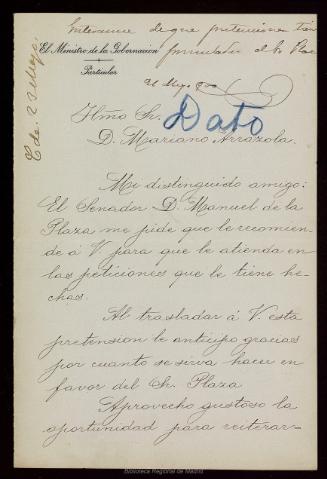 Enterarme de que pretensiones tiene
formuladas el Sr Plaza
El Ministro de la Gobernación
Particular
C de. 23 Mayo.
Ilmo Sr.
Dato
D. Mariano Arrazola.
Mi distinguido amigo:
El Senador D. Manuel de la
Plaza me pide que le recomien-
de á V. para que le atienda en
las peticiones que le tiene he-
chas.
Al trasladar á V. esta
pretension le anticipo gracias
por cuanto se sirva hacer en
favor del Sr. Plaza
Aprovecho gustoso la
oportunidad para reiterar-
Biblioteca Regional de Madrid